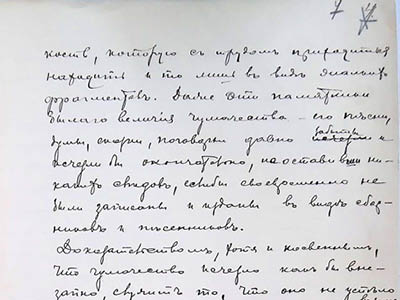 7
ность, которую съ трудомъ приходится
находится и то лишь въ видѣ жалкихъ
фрагментовъ. Даже эти памятники
былаго величія чумачества – его пѣсни,
думы, сказки, поговорки давно забыты и
исчезли бы окончательно, не оставивши ни-
какихъ слѣдовъ, еслибы своевременно не
были записаны и изданы въ видѣ сбор-
никовъ и пѣсенниковъ.
Доказательствомъ, хотя и косвеннымъ,
что чумачество исчезло какъ бы вне-
запно, служитъ то, что оно не успѣло